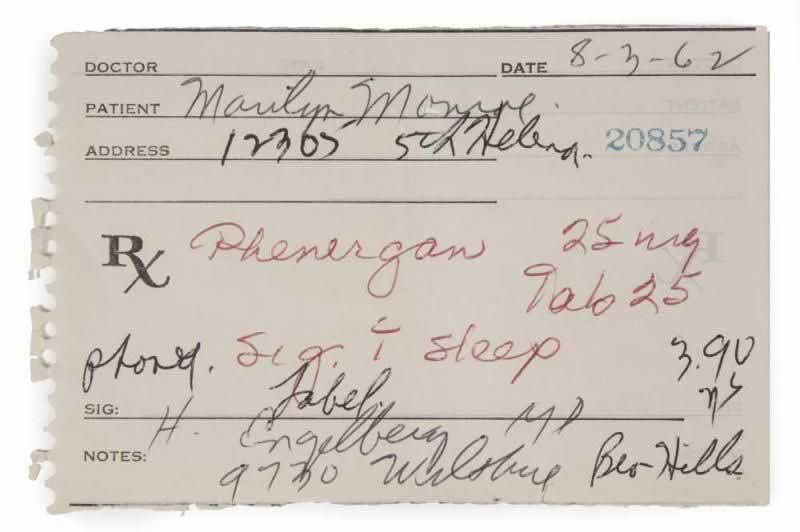 DOCTOR DATE 8-3-62
PATIENT Marilyn Monroe.
ADDRESS 12305 5th Helena. 20857
Rx Phenergan 25 mg
Tab 25
phoned. Sig. i sleep 3.90
Label.
SIG:
H. Engelberg MD
NOTES: 9730 Wilshire Bev-Hills